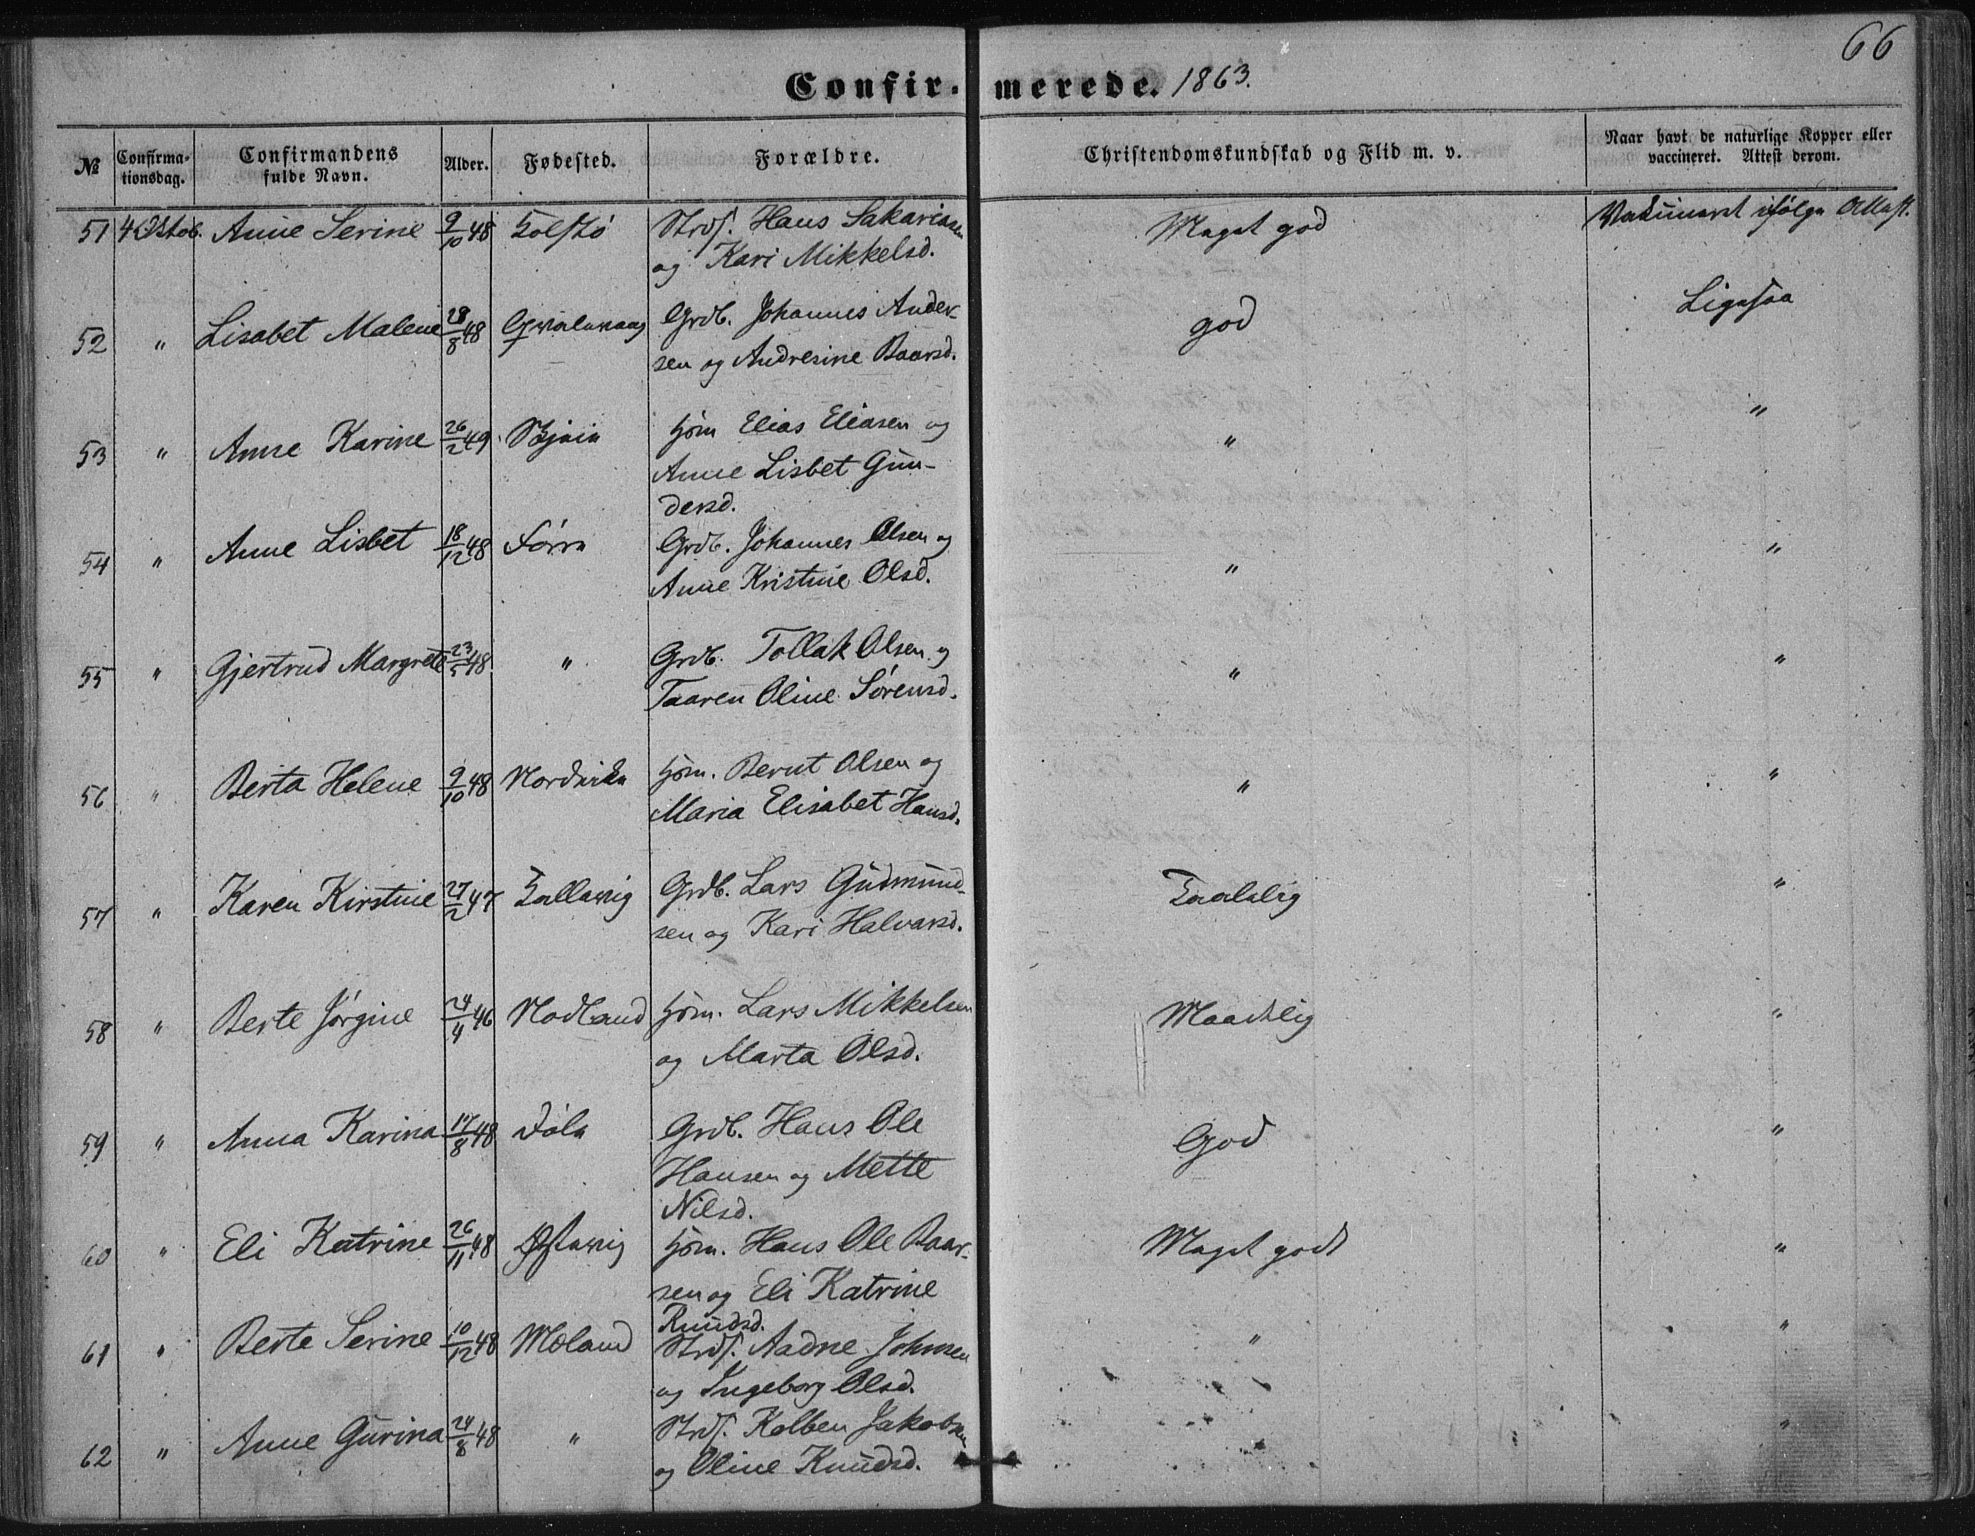 66
Confir- merede. 1863.
№ Confirma-tionsdag. Confirmandens fulde Navn. Alder. Fødested. Forældre. Christendomskundskab og Flid m. v. Naar havt de naturlige Kopper eller vaccineret. Attest derom.
51 4 Oktob. Anne Serine 9/10 48 Strds. Hans Sakariasen Meget god ifølge Attest.
og Kari Mikkelsd.
52 " Lisabet Malene 28/8 48 Qvalavaag Grdb. Johannes Ander- god Ligesaa
sen og Andresine Baarsd.
53 " Anne Karine 26/2 49 Hjøm Elias Eliasen og " "
Anne Lisbet Gun-
dersd.
54 " Anne Lisbet 18/12 48 Førre Grdb. Johannes Olsen og " "
Anne Kristine Olsd.
55 " Gjertrud Margrete 23/5 48 " Grdb. Tollak Olsen og " "
Taaren Oline Sørensd.
56 " Berta Helene 9/10 48 Nordvike Hjøm. Bernt Olsen og " "
Maria Elisabet Hansd.
57 " Karen Kirstine 27/2 47 Grdb. Lars Gudmund- Taalelig "
sen og Kari Halvarsd.
58 " Berte Jørgine 24/4 46 Nodland Hjøm. Lars Mikkelsen Maadelig "
og Marta Olsd.
59 " Anna Karina 17/8 48 Grdb. Hans Ole God "
Hansen og Mette
Nilsd.
60 " Eli Katrine 26/11 48 Østavig Hjøm. Hans Ole Baar- Meget godt "
sen og Eli Katrine
Knudsd.
61 " Berte Serine 10/12 48 Moland Strds. Aadne Johnsen " "
og Ingeborg Olsd.
62 " Anne Gurina 24/8 48 " Strds. Kolben Jakobsen "
og Oline Knudsd.